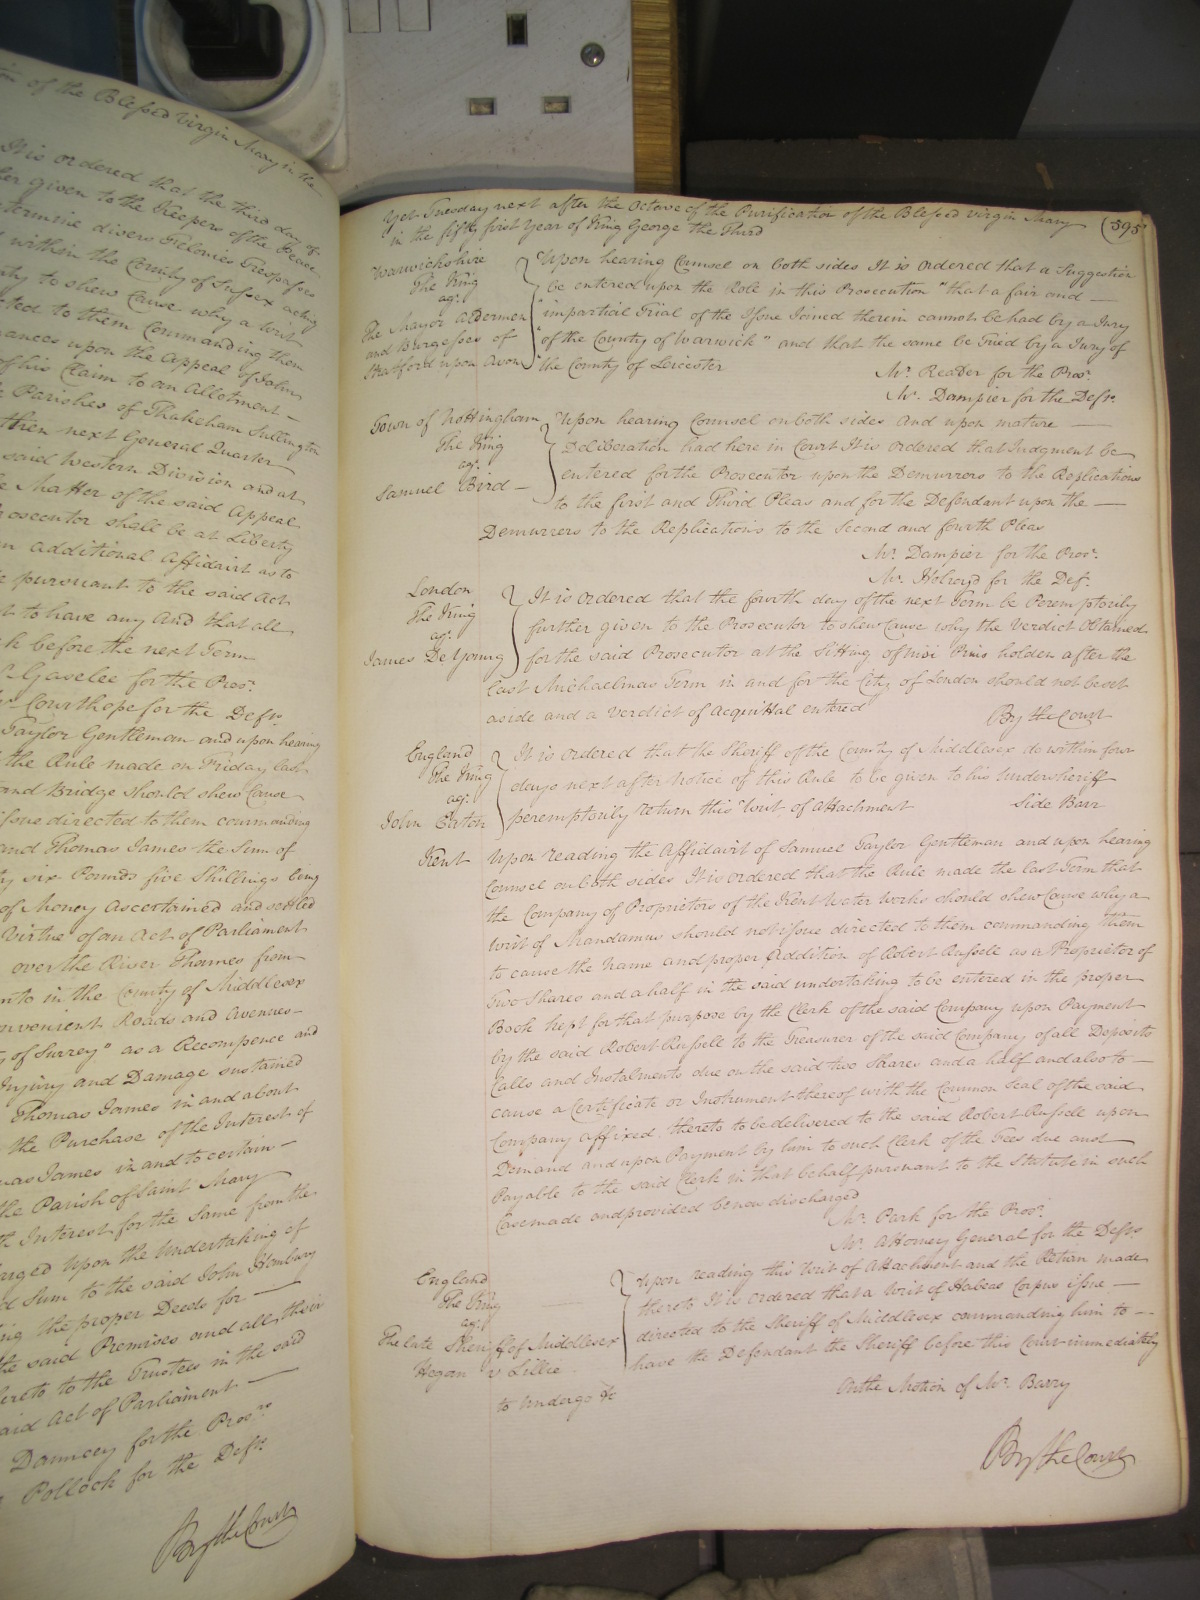 of the Blessed Virgin Mary in the
It is ordered that the third day of
given to the Keepers of the Peace
divers Felonies Trespasses
within the County of Sussex acting
to shew Cause why a Writ
directed to them Commanding them
upon the Appeal of John
of his Claim to an Allotment
Parishes of Thakeham Sullington
then next General Quarter
said Western Division and at
Matter of the said Appeal
Prosecutor shall be at Liberty
an additional Affidavit as to
pursuant to the said Act
to have any And that all
before the next Term
Gaselee for the Pros.r
Courthope for the Defts.
Taylor Gentleman and upon hearing
the Rule made on Friday last
and Bridge should shew Cause
issue directed to them commanding
and Thomas James the Sum of
six Pounds five Shillings being
of Money ascertained and settled
Virtue of an Act of Parliament
over the River Thames from
in the County of Middlesex
convenient Roads and Avenues
of Surrey" as a Recompence and
Injury and Damage sustained
Thomas James in and about
the Purchase of the Interest of
James in and to certain
the Parish of Saint Mary
Interest for the same from the
upon the Undertaking of
Sum to the said John Hanbury
the proper Deeds for
the said Premises and all their
to the Trustees in the said
said Act of Parliament
Dauncey for the Pros.rs
Pollock for the Defts.
By the Court
Yet Tuesday next after the Octave of the Purification of the Blessed Virgin Mary (595
in the fifty first Year of King George the Third
Warwickshire
The King
ag.t
The Mayor Aldermen
and Burgesses of
Stratford upon Avon
Upon hearing Counsel on both sides It is ordered that a Suggestion
be entered upon the Role in this Prosecution "that a fair and
"impartial Trial of the Issue Joined therein cannot be had by a Jury
"of the County of Warwick" and that the same be tried by a Jury of
the County of Leicester
Mr. Reader for the Pros.r
Mr. Dampier for the Defts.
Town of Nottingham
The King
ag.t
Samuel Bird
Upon hearing Counsel on both sides And upon mature
Deliberation had here in Court It is ordered that Judgment be
entered for the Prosecutor upon the Demurrers to the Replications
to the first and Third Pleas and for the Defendant upon the
Demurrers to the Replications to the Second and fourth Pleas
Mr. Dampier for the Pros.r
Mr. Holroyd for the Deft.
London
The King
ag.t
James De Yonng
It is ordered that the fourth day of the next Term be Peremptorily
further given to the Prosecutor to shew Cause why the Verdict obtained
for the said Prosecutor at the Sitting of Nisi Prius holden after the
last Michaelmas Term in and for the City of London should not be set
aside and a Verdict of Acquittal entered
By the Court
England
The King
ag.t
John Eaton
It is ordered that the Sheriff of the County of Middlesex do within four
days next after Notice of this Rule to be given to his Undersheriff
peremptorily return this Writ of Attachment
Side Barr
Kent
Upon reading the Affidavit of Samuel Taylor Gentleman and upon hearing
Counsel on both sides It is ordered that the Rule made the last Term that
the Company of Proprietors of the Kent Water Works should shew Cause why a
Writ of Mandamus should not issue directed to them commanding them
to cause the Name and proper Addition of Robert Russell as a Proprietor of
Two Shares and a half in the said undertaking to be entered in the proper
Book kept for that purpose by the Clerk of the said Company upon Payment
by the said Robert Russell to the Treasurer of the said Company of all Deposits
Calls and Instalments due on the said two Shares and a half and also to
cause a Certificate or Instrument thereof with the Common Seal of the said
Company affixed thereto to be delivered to the said Robert Russell upon
Demand and upon Payment by him to such Clerk of the Fees due and
Payable to the said Clerk in that behalf pursuant to the Statute in such
Case made and provided be now discharged
Mr. Park for the Pros.r
Mr. Attorney General for the Defts
England
The King
ag.t
The late Sheriff of Middlesex
Hogan v Lillie
to Undergo &c
Upon reading this Writ of Attachment and the Return made
thereto It is ordered that a Writ of Habeas Corpus issue
directed to the Sheriff of Middlesex commanding him to
have the Defendant the Sheriff before this Court immediately
On the Motion of Mr. Barry
By the Court